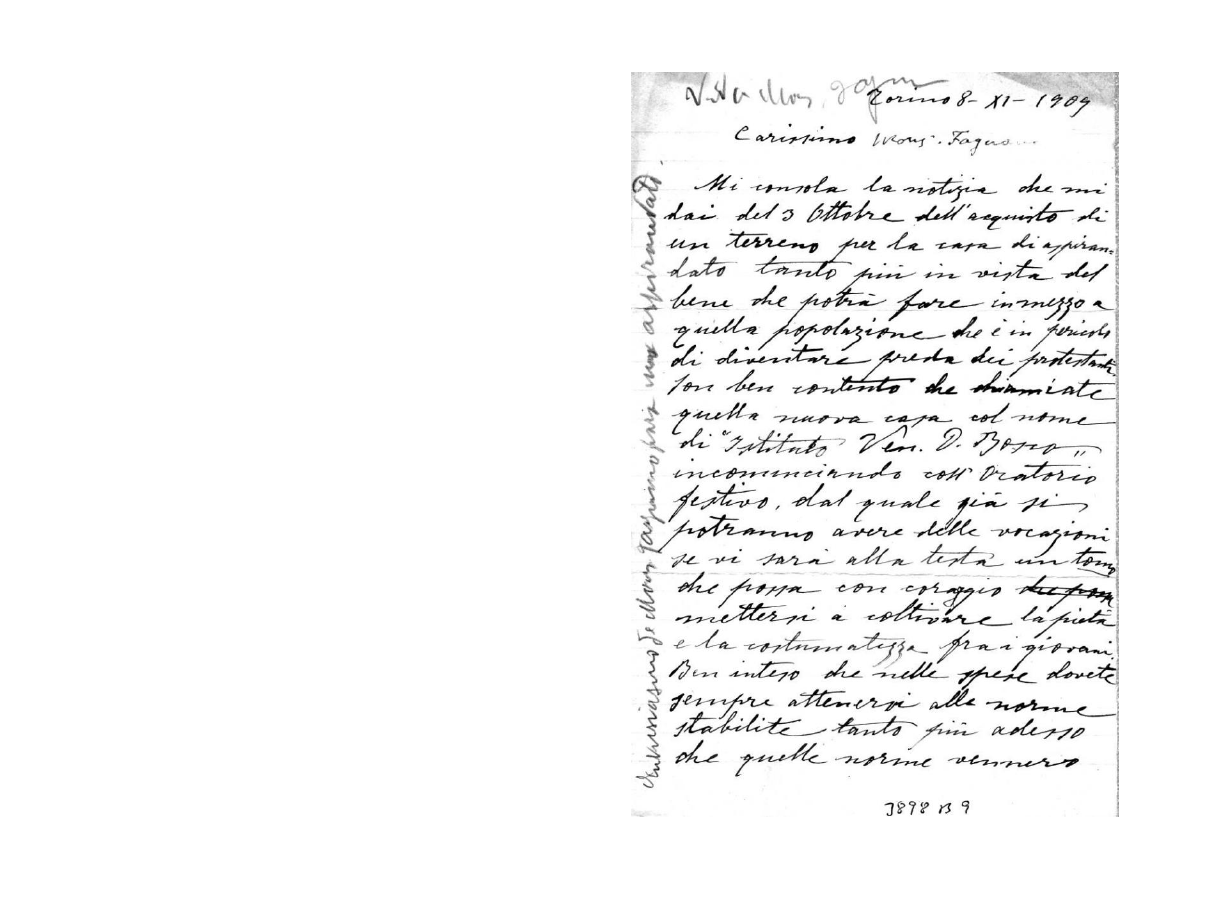 Torino 8- XI- 1909
Carissimo Mons. Fagnano
Mi consola la notizia che mi
dai del 3 Ottobre dell'acquisto di
un terreno per la casa di aspiran=
dato tanto più in vista del
bene che potrà fare in mezzo a
quella popolazione che è in pericolo
di diventare preda dei protestanti.
Son ben contento che chiamiate
quella nuova casa col nome
di "Istituto Ven. D. Bosco"
incominciando coll'Oratorio
festivo, dal quale già si
potranno avere delle vocazioni
se vi sarà alla testa un tomo
che possa con coraggio che possa
mettersi a coltivare la pietà
e la costumatezza fra i giovani.
Ben inteso che nelle spese dovete
sempre attenervi alle norme
stabilite tanto più adesso
che quelle norme vennero
3898 B 9
Entusiasmo de Mons Fagnano para un aspirantado.